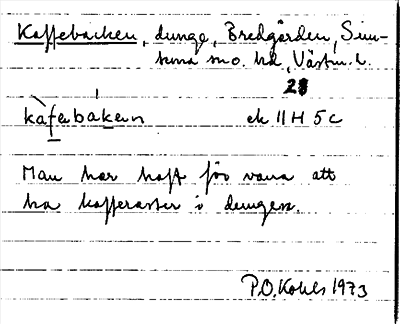 Kaffebacken, dunge, Bredgården, Sim-
tuna sn o. hd, Västm. l.
28
kàfebákẹn ek 11 H 5 c
Man har haft för vana att
ha kafferaster i dungen.
P.O. Kohls 1973